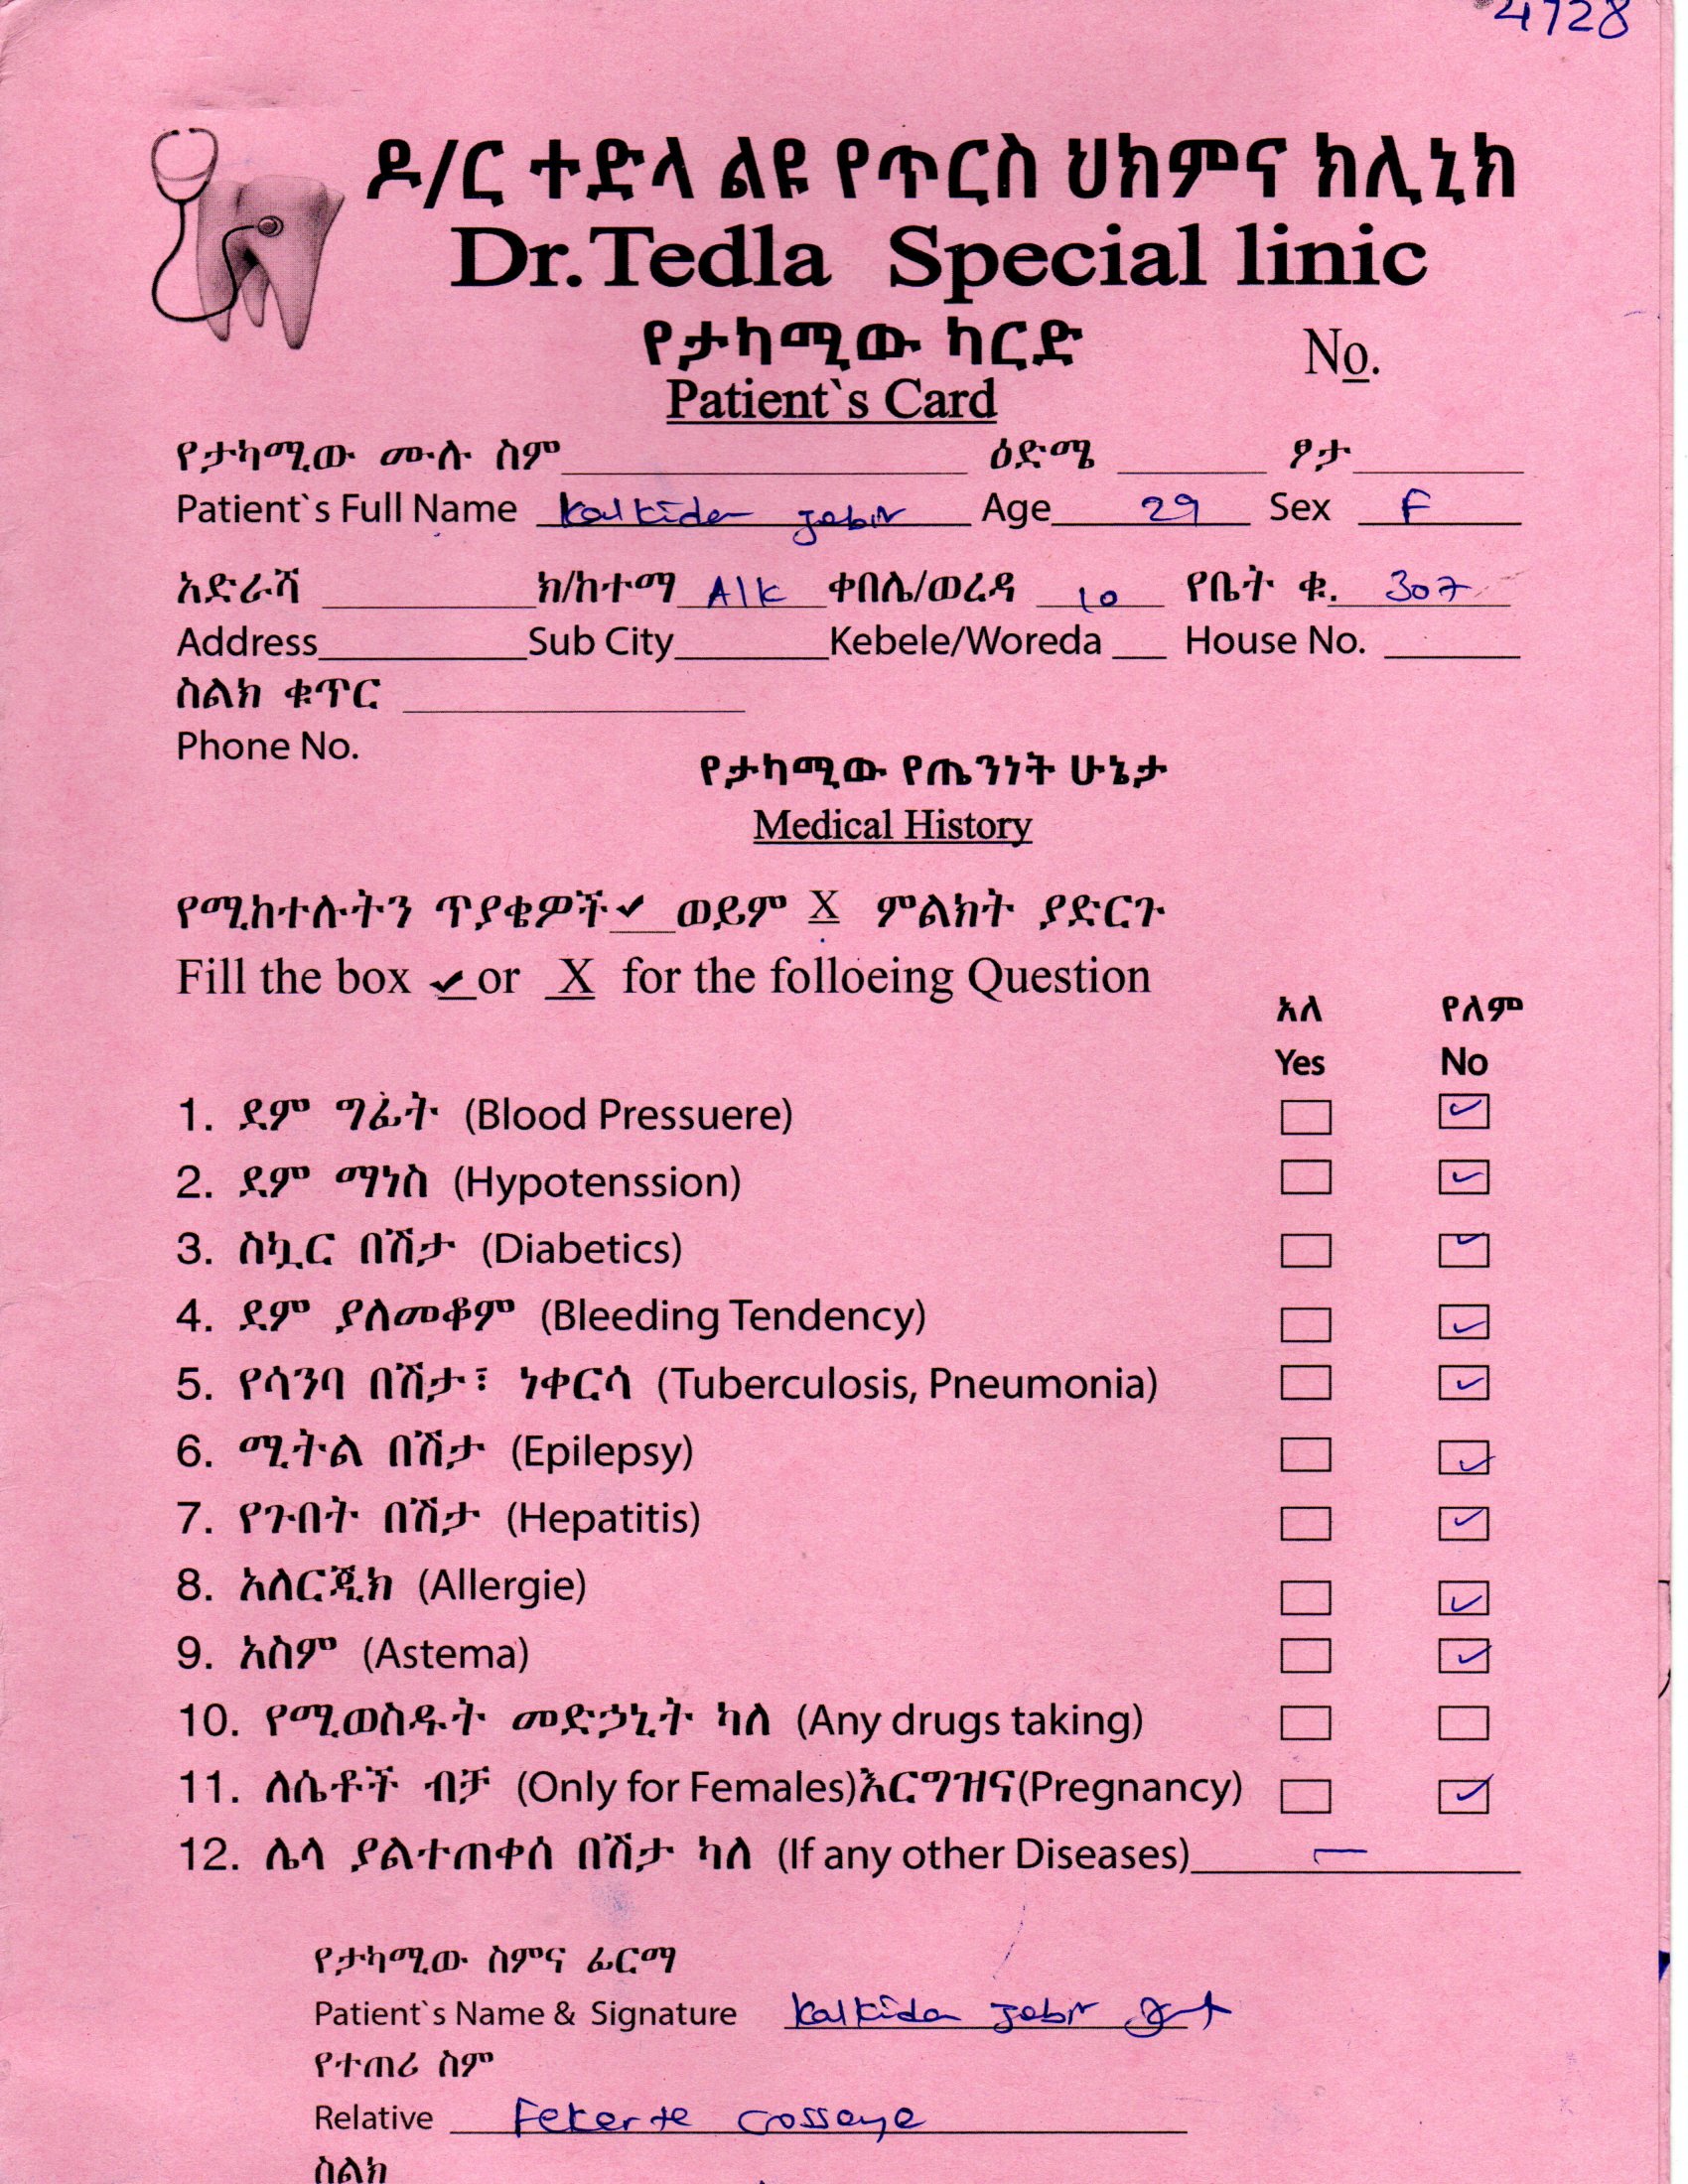 4728
ዶ/ር ተድላ ልዩ የጥርስ ህክምና ክሊኒክ
Dr. Tedla Special linic
የታካሚው ካርድ
No.
Patient`s Card
የታካሚው ሙሉ ስም ዕድሜ ፆታ
Patient`s Full Name Kalkidan Jebir Age 29 Sex F
አድራሻ ክ/ከተማ A/K ቀበሌ/ወረዳ 10 የቤት ቁ. 307
Address Sub City Kebele/Woreda House No.
ስልክ ቁጥር
Phone No.
የታካሚው የጤንነት ሁኔታ
Medical History
የሚከተሉትን ጥያቄዎች ✔ ወይም X ምልክት ያድርጉ
Fill the box ✔ or X for the folloeing Question
አለ የለም
Yes No
1. ደም ግፊት (Blood Pressuere) ☐ ☑
2. ደም ማነስ (Hypotenssion) ☐ ☑
3. ስኳር በሽታ (Diabetics) ☐ ☑
4. ደም ያለመቆም (Bleeding Tendency) ☐ ☑
5. የሳንባ በሽታ፣ ነቀርሳ (Tuberculosis, Pneumonia) ☐ ☑
6. ሚትል በሽታ (Epilepsy) ☐ ☑
7. የጉበት በሽታ (Hepatitis) ☐ ☑
8. አለርጂክ (Allergie) ☐ ☑
9. አስም (Astema) ☐ ☑
10. የሚወስዱት መድኃኒት ካለ (Any drugs taking) ☐ ☐
11. ለሴቶች ብቻ (Only for Females)እርግዝና(Pregnancy) ☐ ☑
12. ሌላ ያልተጠቀሰ በሽታ ካለ (If any other Diseases) —
የታካሚው ስምና ፊርማ
Patient`s Name & Signature Kalkidan Jebir
የተጠሪ ስም
Relative Fekerte
ስልክ